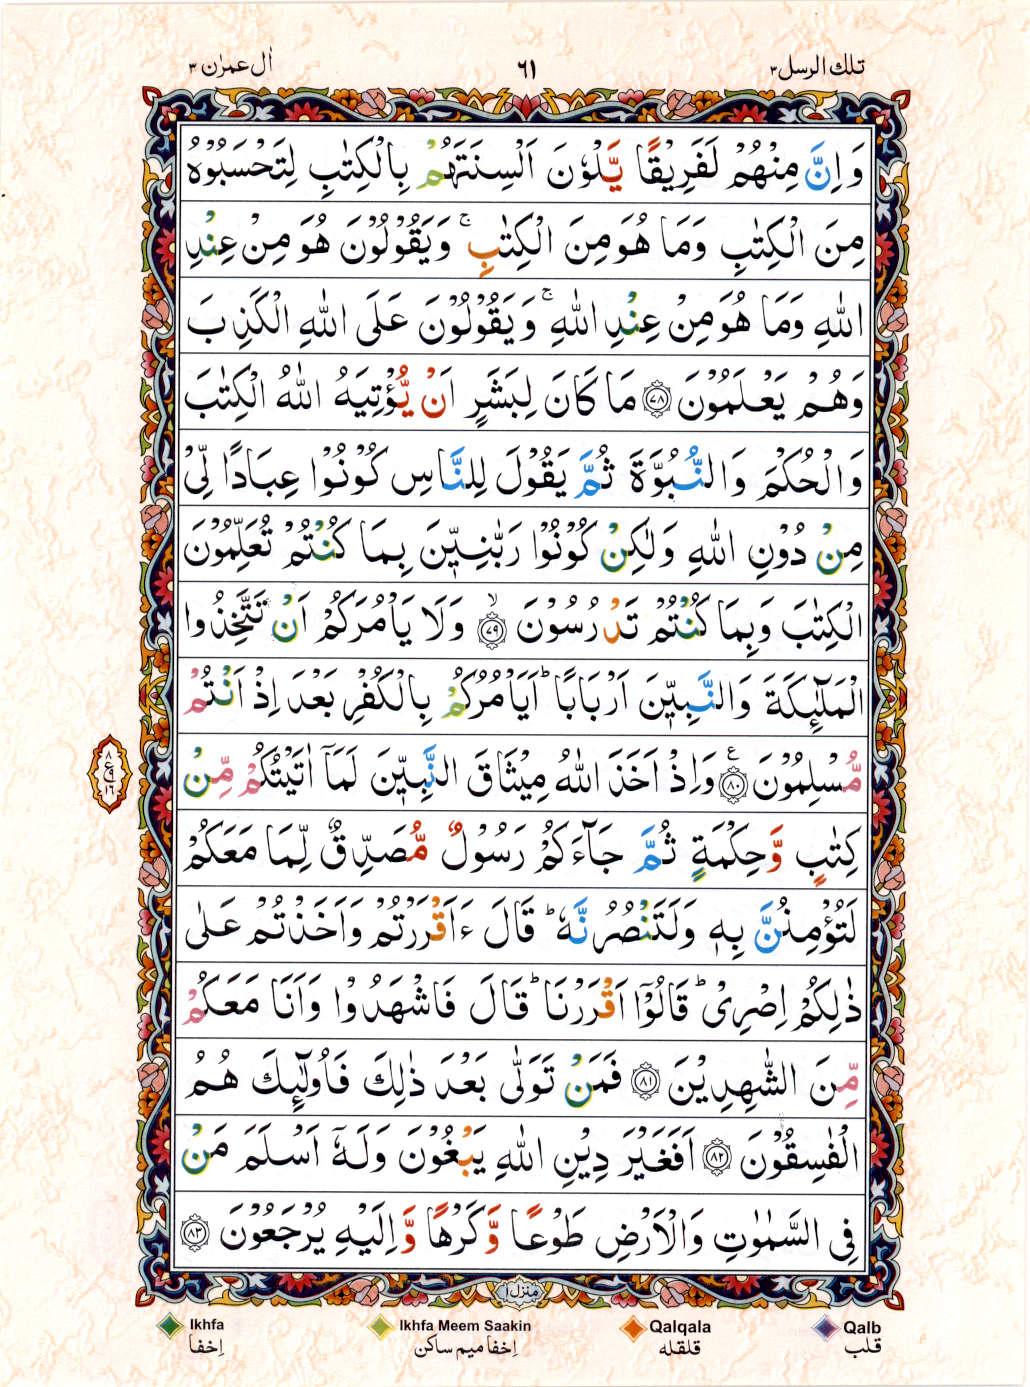 تلك الرسل ٣ ٦١ اٰل عمرٰن ٣
وَاِنَّ مِنْهُمْ لَفَرِيْقًا يَّلْوٗنَ اَلْسِنَتَهُمْ بِالْكِتٰبِ لِتَحْسَبُوْهُ
مِنَ الْكِتٰبِ وَمَا هُوَ مِنَ الْكِتٰبِ ۚ وَيَقُوْلُوْنَ هُوَ مِنْ عِنْدِ
اللّٰهِ وَمَا هُوَ مِنْ عِنْدِ اللّٰهِ ۚ وَيَقُوْلُوْنَ عَلَى اللّٰهِ الْكَذِبَ
وَهُمْ يَعْلَمُوْنَ ۝٧٨ مَا كَانَ لِبَشَرٍ اَنْ يُّؤْتِيَهُ اللّٰهُ الْكِتٰبَ
وَالْحُكْمَ وَالنُّبُوَّةَ ثُمَّ يَقُوْلَ لِلنَّاسِ كُوْنُوْا عِبَادًا لِّيْ
مِنْ دُوْنِ اللّٰهِ وَلٰكِنْ كُوْنُوْا رَبّٰنِيّٖنَ بِمَا كُنْتُمْ تُعَلِّمُوْنَ
الْكِتٰبَ وَبِمَا كُنْتُمْ تَدْرُسُوْنَ ۙ۝٧٩ وَلَا يَاْمُرَكُمْ اَنْ تَتَّخِذُوا
الْمَلٰٓئِكَةَ وَالنَّبِيّٖنَ اَرْبَابًا ؕ اَيَاْمُرُكُمْ بِالْكُفْرِ بَعْدَ اِذْ اَنْتُمْ
مُّسْلِمُوْنَ ۝٨٠ ع وَاِذْ اَخَذَ اللّٰهُ مِيْثَاقَ النَّبِيّٖنَ لَمَاۤ اٰتَيْتُكُمْ مِّنْ
٨ ع ٩ ١٦
كِتٰبٍ وَّحِكْمَةٍ ثُمَّ جَآءَكُمْ رَسُوْلٌ مُّصَدِّقٌ لِّمَا مَعَكُمْ
لَتُؤْمِنُنَّ بِهٖ وَلَتَنْصُرُنَّهٗ ؕ قَالَ ءَاَقْرَرْتُمْ وَاَخَذْتُمْ عَلٰى
ذٰلِكُمْ اِصْرِيْ ؕ قَالُوْۤا اَقْرَرْنَا ؕ قَالَ فَاشْهَدُوْا وَاَنَا مَعَكُمْ
مِّنَ الشّٰهِدِيْنَ ۝٨١ فَمَنْ تَوَلّٰى بَعْدَ ذٰلِكَ فَاُولٰٓئِكَ هُمُ
الْفٰسِقُوْنَ ۝٨٢ اَفَغَيْرَ دِيْنِ اللّٰهِ يَبْغُوْنَ وَلَهٗۤ اَسْلَمَ مَنْ
فِى السَّمٰوٰتِ وَالْاَرْضِ طَوْعًا وَّكَرْهًا وَّاِلَيْهِ يُرْجَعُوْنَ ۝٨٣
منزل ١
Ikhfa Ikhfa Meem Saakin Qalqala Qalb
اِخفا اِخفا میم ساکن قلقله قلب